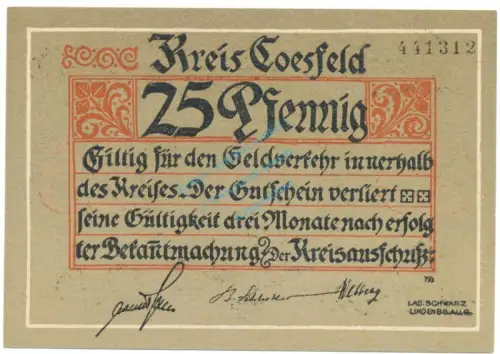 Kreis Coesfeld
441312
25 Pfennig
Giltig für den Geldverkehr innerhalb
des Kreises. Der Gutschein verliert
seine Gültigkeit drei Monate nach erfolg
ter Bekantmachung. Der Kreisausschuß:
LAG. SCHWARZ
LINDENBG. ALLG.